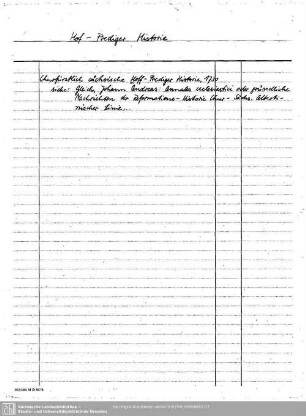 Hof - Prediger Historie
Churfürstlich sächsische Hoff-Prediger Historie, 1730
siehe: Gleich, Johann Andreas: Annales ecclesiastici oder gründliche
Nachrichten der Reformations-Historie Chur-Sächs. Alberti-
nischer Linie...
Sächsische Landesbibliothek -
Staats- und Universitätsbibliothek Dresden